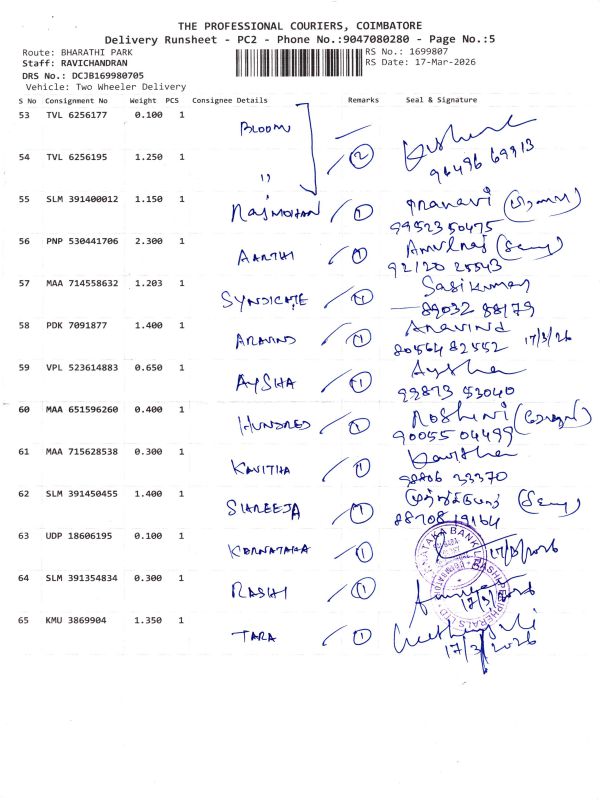 THE PROFESSIONAL COURIERS, COIMBATORE
Delivery Runsheet - PC2 - Phone No.:9047080280 - Page No.:5
Route: BHARATHI PARK
Staff: RAVICHANDRAN
RS No.: 1699807
RS Date: 17-Mar-2026
DRS No.: DCJB169980705
Vehicle: Two Wheeler Delivery
S No Consignment No Weight PCS Consignee Details Remarks Seal & Signature
53 TVL 6256177 0.100 1 BLOOM
54 TVL 6256195 1.250 1 " 2 96496 69913
55 SLM 391400012 1.150 1 RAJMOHAN 1 Pranavi
99523 50475
56 PNP 530441706 2.300 1 AARTHI 1 Amulraj
92120 25543
57 MAA 714558632 1.203 1 SYNDICATE 1 Sasikumar
89032 88179
58 PDK 7091877 1.400 1 ARAVIND 1 Aravind
80564 82552 17/3/26
59 VPL 523614883 0.650 1 AYSHA 1 Aysha
99873 53040
60 MAA 651596260 0.400 1 HUNDRED 1 Roshini
90055 04499
61 MAA 715628538 0.300 1 KAVITHA 1 Kavitha
98806 33370
62 SLM 391450455 1.400 1 SHREEJA 1
88708 19164
63 UDP 18606195 0.100 1 KARNATAKA 1 17/3/2026
KARNATAKA BANK
64 SLM 391354834 0.300 1 RASHI 1 17/3/2026
RASHI PERIPHERALS LTD
65 KMU 3869904 1.350 1 TARA 1
17/3/2026